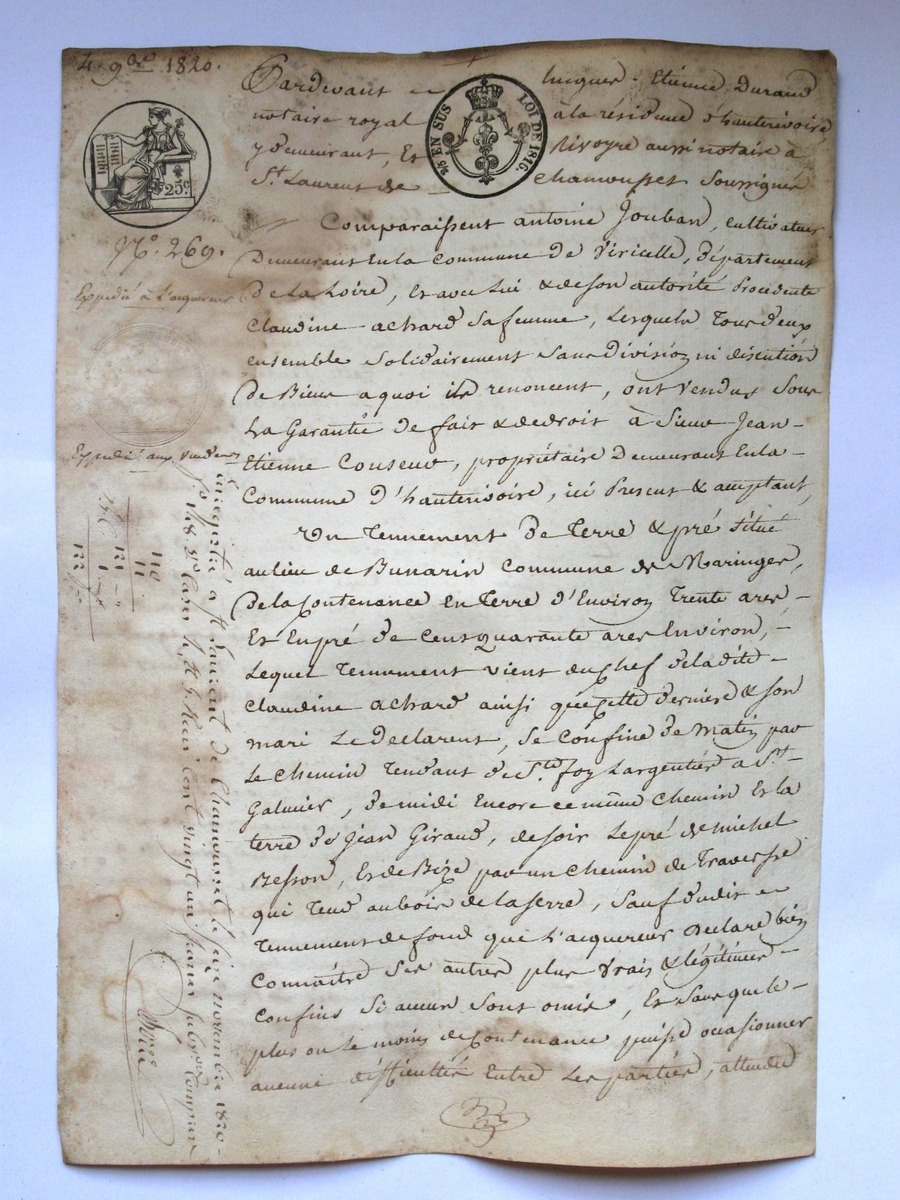 4. 9bre 1820.
Pardevant Me Jacques-Etienne Durand
notaire royal à la résidence d'hauterivoire,
y demeurant, Et Me Rivoyre aussi notaire à
St. Laurent de Chamousset Soussignés
25c.
25 EN SUS LOI DE 1816.
No. 269.
Expédié à l'acquereur
Expedié aux Vendeurs
Comparaissent antoine Jouban, cultivateur
Demeurant En la Commune de Viricelle, Département
De La Loire, Et avec Lui & de son autorité Procedente
Claudine achard sa femme, Lesquels Tous deux
ensemble Solidairement Sans Division ni discution
De Biens a quoi ils renoncent, ont Vendus Sous
La Garantie De fait & de droit à Sieur Jean-
Etienne Couseur, propriétaire Demeurant En la
Commune D'hauterivoire, ici Present & acceptant,
Un Tennement De Terre & pré Situé
au lieu de Bunarin Commune de Maringes,
De la Contenance en Terre d'Environ Trente ares-
Et En pré De Cent quarante ares Environ,-
Lequel Tennement vient du Chef de la dite-
Claudine achard ainsi que cette derniere & son
mari Le Declarent, Se Confine De Matin par
Le Chemin Tendant de Ste foy Largentiere a St-
Galmier, De midi Encore ce même Chemin Et la
terre de Jean Giraud, de Soir Le pré de Michel
Besson, Et de Bize par un Chemin de Traverse
qui Tend au bois de la Serre, Sauf dudit
Tennement de fond que L'acquereur Declare bien
Connaître Ses autres plus Vrais & légitimes-
Confins Si aucun Sont omis, Et Sans que le-
plus ou Le moins de Contenance puisse occasionner
aucune difficultés Entre Les parties, attendu
Enregistré à St. Laurent de Chamousset le Seize novembre 1820
110
11
121
1